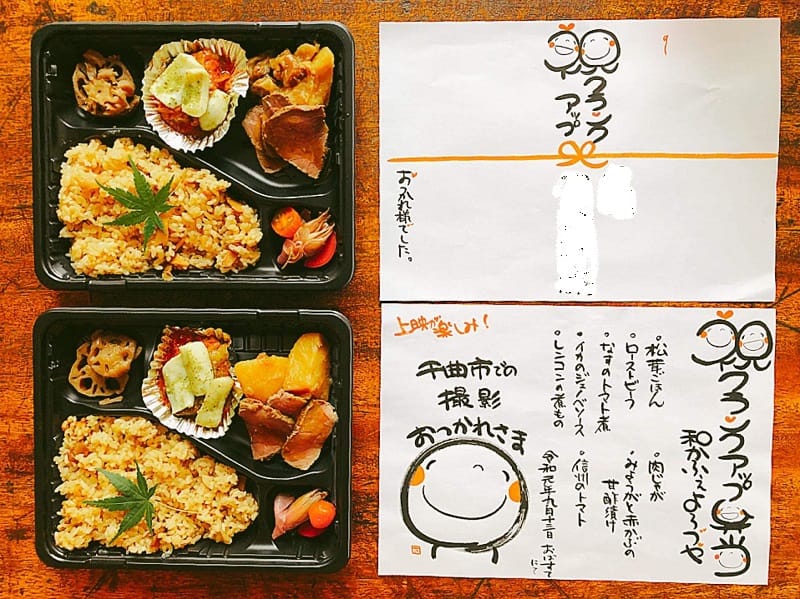 祝クランク
アップ
おつかれ様でした。
祝クランクアップ弁当
和かふぇよろづや
・松茸ごはん
・ローストビーフ
・なすのトマト煮
・イカのジェノベソース
・レンコンの煮もの
・肉じゃが
・みょうがと赤かぶの
甘酢漬け
・信州のトマト
令和元年九月十三日 おばすて
にて
上映が楽しみ!
千曲市での
撮影
おつかれさま